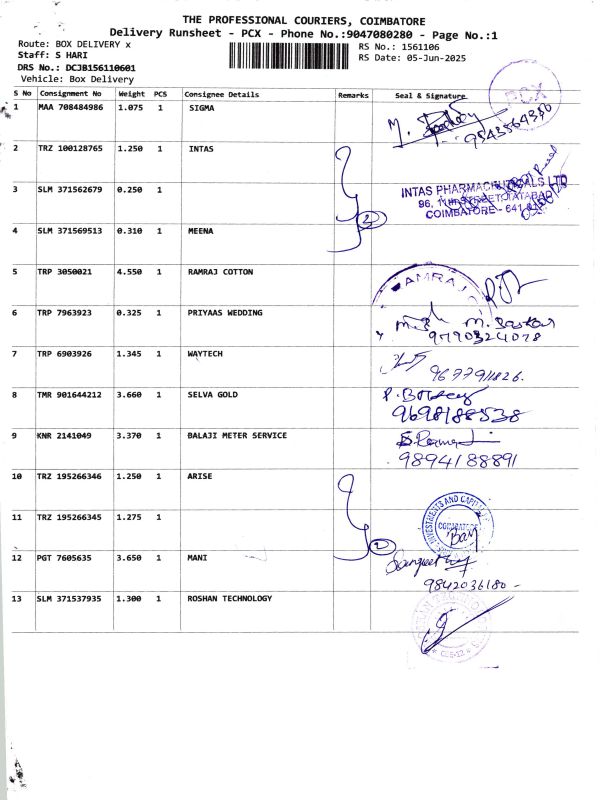 THE PROFESSIONAL COURIERS, COIMBATORE
Delivery Runsheet - PCX - Phone No.:9047080280 - Page No.:1
Route: BOX DELIVERY x
RS No.: 1561106
Staff: S HARI
RS Date: 05-Jun-2025
DRS No.: DCJB156110601
Vehicle: Box Delivery
S No Consignment No Weight PCS Consignee Details Remarks Seal & Signature
PCX
1 MAA 708484986 1.075 1 SIGMA
9543564350
2 TRZ 100128765 1.250 1 INTAS
3 SLM 371562679 0.250 1
INTAS PHARMACEUTICALS LTD
96,
COIMBATORE - 641
2
4 SLM 371569513 0.310 1 MEENA
5 TRP 3050021 4.550 1 RAMRAJ COTTON
RAMRAJ
6 TRP 7963923 0.325 1 PRIYAAS WEDDING
9790324078
7 TRP 6903926 1.345 1 WAYTECH
9677911826.
8 TMR 901644212 3.660 1 SELVA GOLD
9698188538
9 KNR 2141049 3.370 1 BALAJI METER SERVICE
9894188891
10 TRZ 195266346 1.250 1 ARISE
INVESTMENTS AND CAPITAL
COIMBATORE
11 TRZ 195266345 1.275 1
2
12 PGT 7605635 3.650 1 MANI
9842036180 -
13 SLM 371537935 1.300 1 ROSHAN TECHNOLOGY